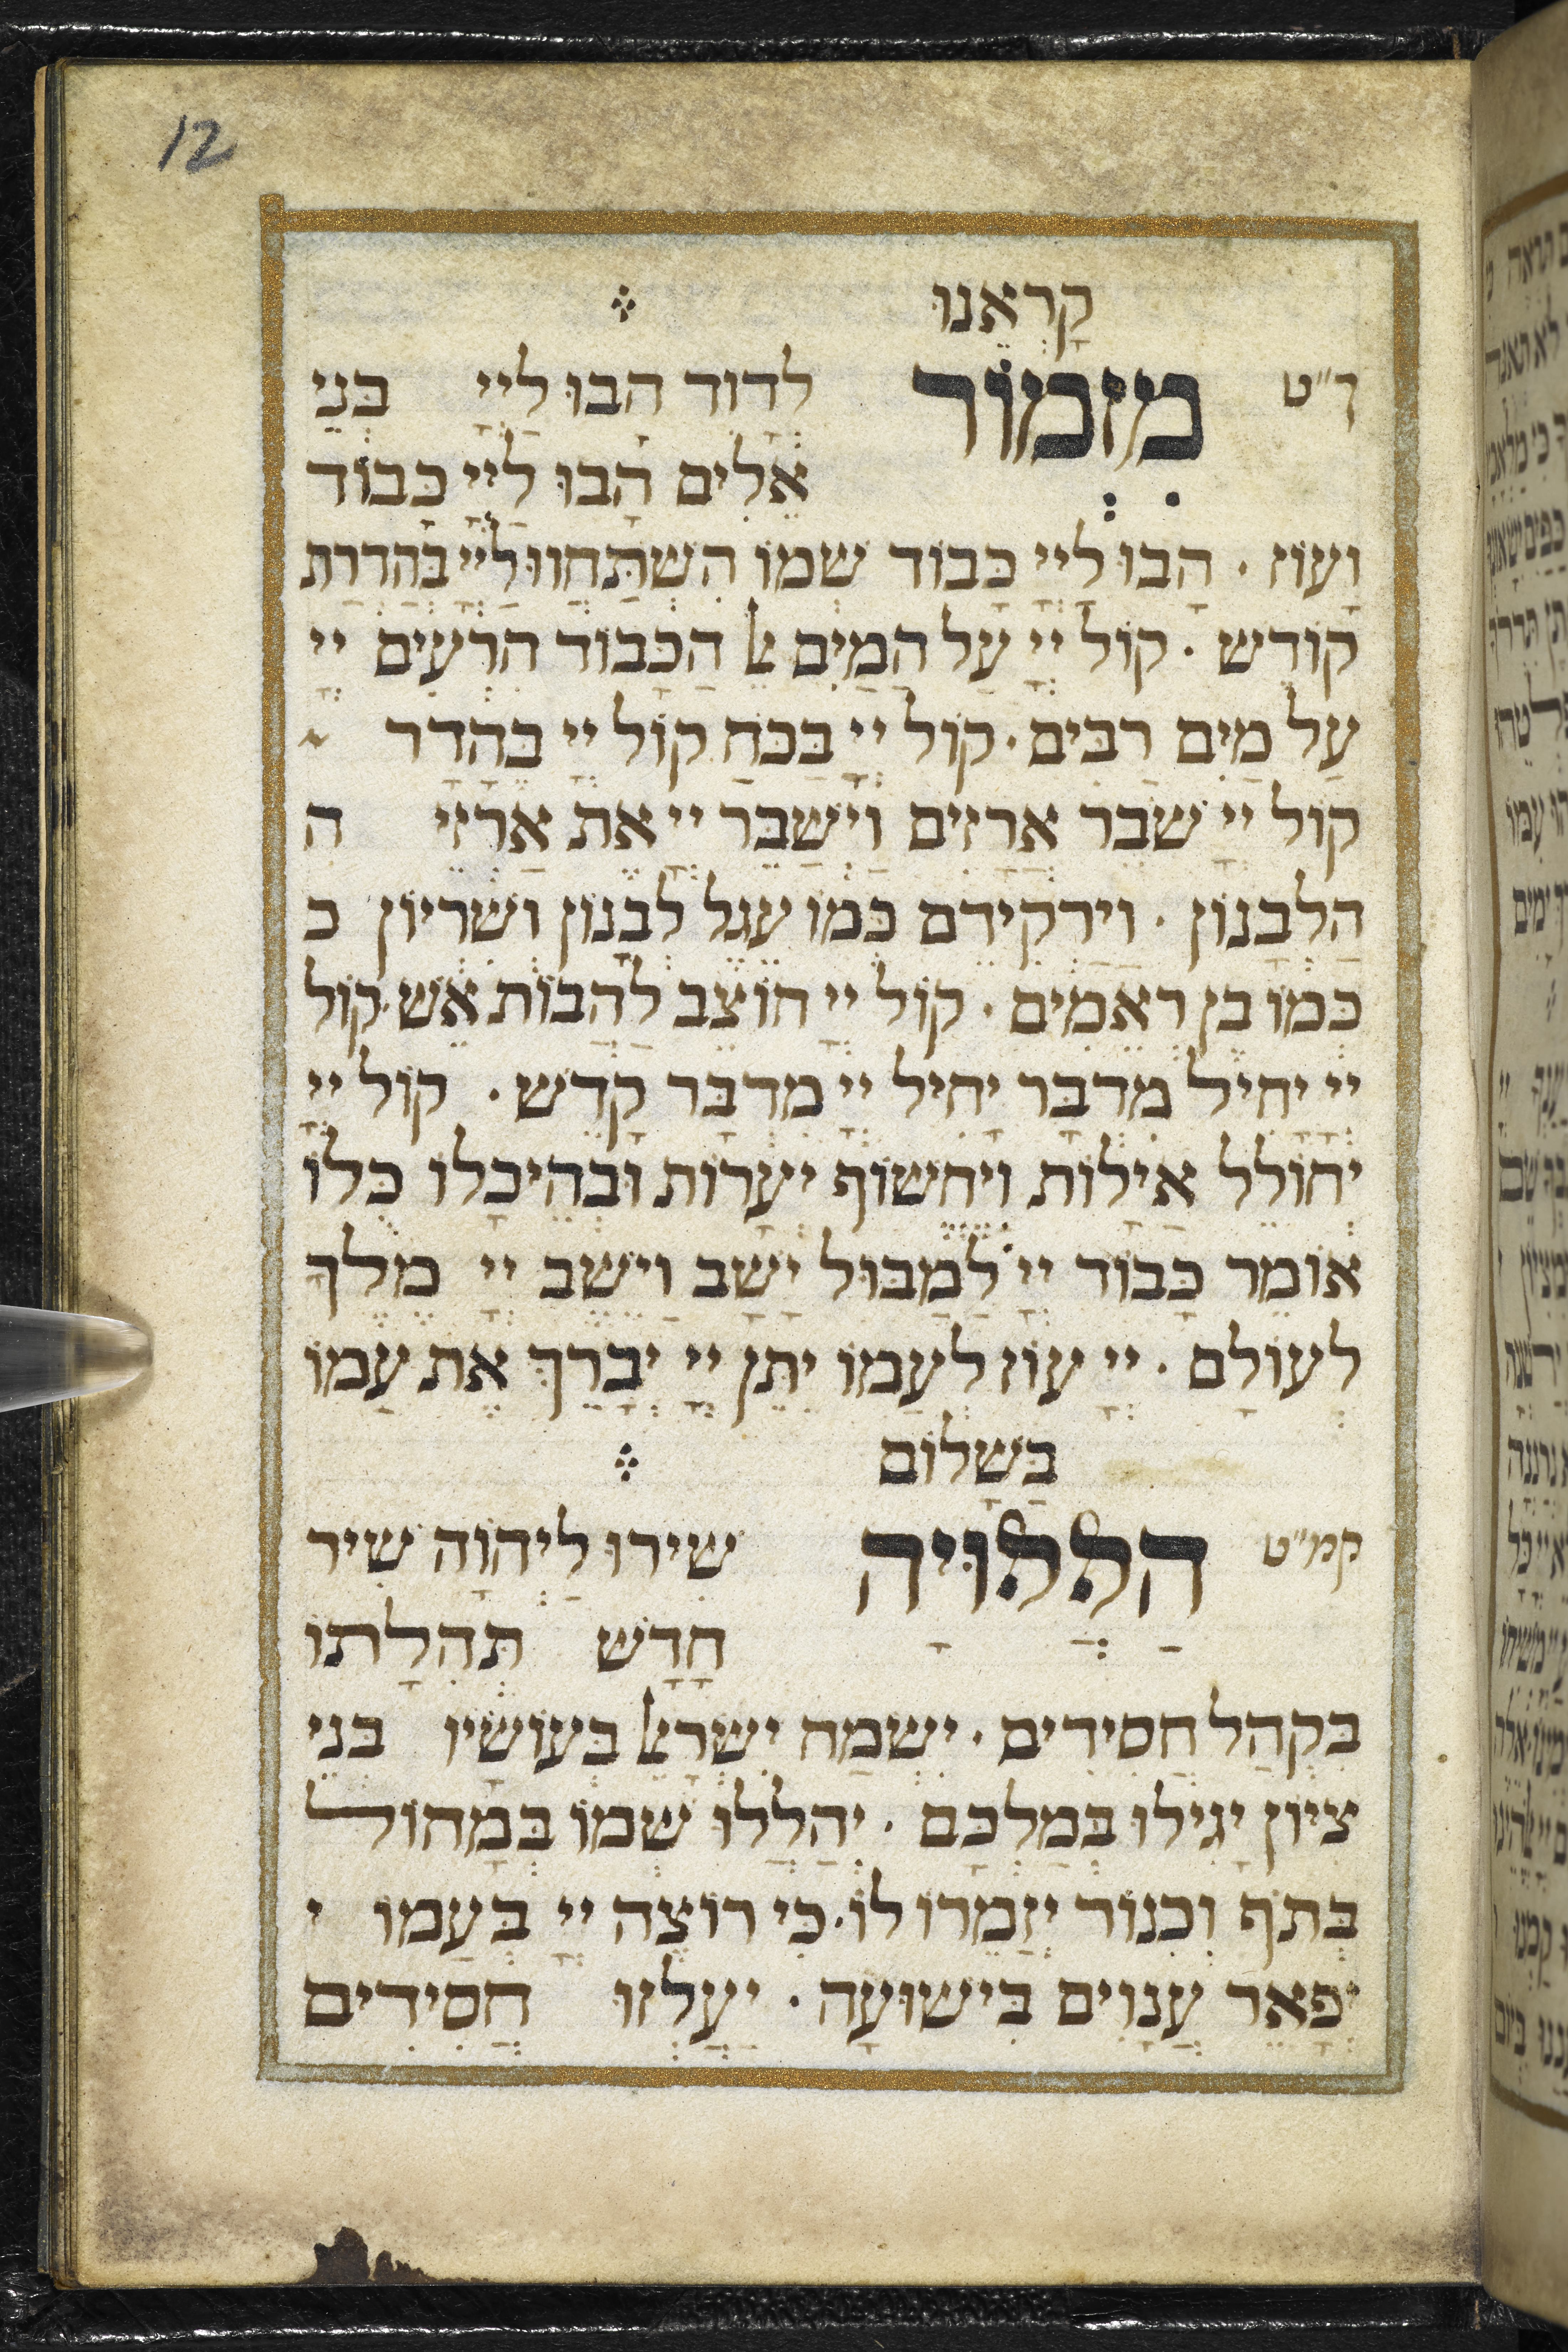 12
קָרְאֵנוּ
ך״ט מִזְמוֹר לְדָוִד הָבוּ לַיְיָ בְּנֵי
אֵלִים הָבוּ לַיְיָ כָּבוֹד
וָעוֹז · הָבוּ לַיְיָ כְּבוֹד שְׁמוֹ הִשְׁתַּחֲווּ לַיְיָ בְּהַדְרַת
קוֹדֶשׁ · קוֹל יְיָ עַל הַמַּיִם ﭏ הַכָּבוֹד הִרְעִים יְיָ
עַל מַיִם רַבִּים · קוֹל יְיָ בַּכֹּחַ קוֹל יְיָ בֶּהָדָר
קוֹל יְיָ שֹׁבֵר אֲרָזִים וַיְשַׁבֵּר יְיָ אֶת אַרְזֵי ה
הַלְּבָנוֹן · וַיַּרְקִידֵם כְּמוֹ עֵגֶל לְבָנוֹן וְשִׂרְיוֹן כ
כְּמוֹ בֶן רְאֵמִים · קוֹל יְיָ חוֹצֵב לַהֲבוֹת אֵשׁ · קוֹל
יְיָ יָחִיל מִדְבָּר יָחִיל יְיָ מִדְבַּר קָדֵשׁ · קוֹל יְיָ
יְחוֹלֵל אַיָּלוֹת וַיֶּחֱשׂוֹף יְעָרוֹת וּבְהֵיכָלוֹ כֻּלּוֹ
אוֹמֵר כָּבוֹד יְיָ לַמַּבּוּל יָשָׁב וַיֵּשֶׁב יְיָ מֶלֶךְ
לְעוֹלָם · יְיָ עוֹז לְעַמּוֹ יִתֵּן יְיָ יְבָרֵךְ אֶת עַמּוֹ
בַּשָּׁלוֹם
קמ״ט הַלְלוּיָהּ שִׁירוּ לַיְהוָֹה שִׁיר
חָדָשׁ תְּהִלָּתוֹ
בִּקְהַל חֲסִידִים · יִשְׂמַח יִשְׂרָﭏ בְּעוֹשָׂיו בְּנֵי
צִיּוֹן יָגִילוּ בְמַלְכָּם · יְהַלְלוּ שְׁמוֹ בְּמָחוֹל
בְּתֹף וְכִנּוֹר יְזַמְּרוּ לוֹ · כִּי רוֹצֶה יְיָ בְּעַמּוֹ י
יְפָאֵר עֲנָוִים בִּישׁוּעָה · יַעֲלְזוּ חֲסִידִים